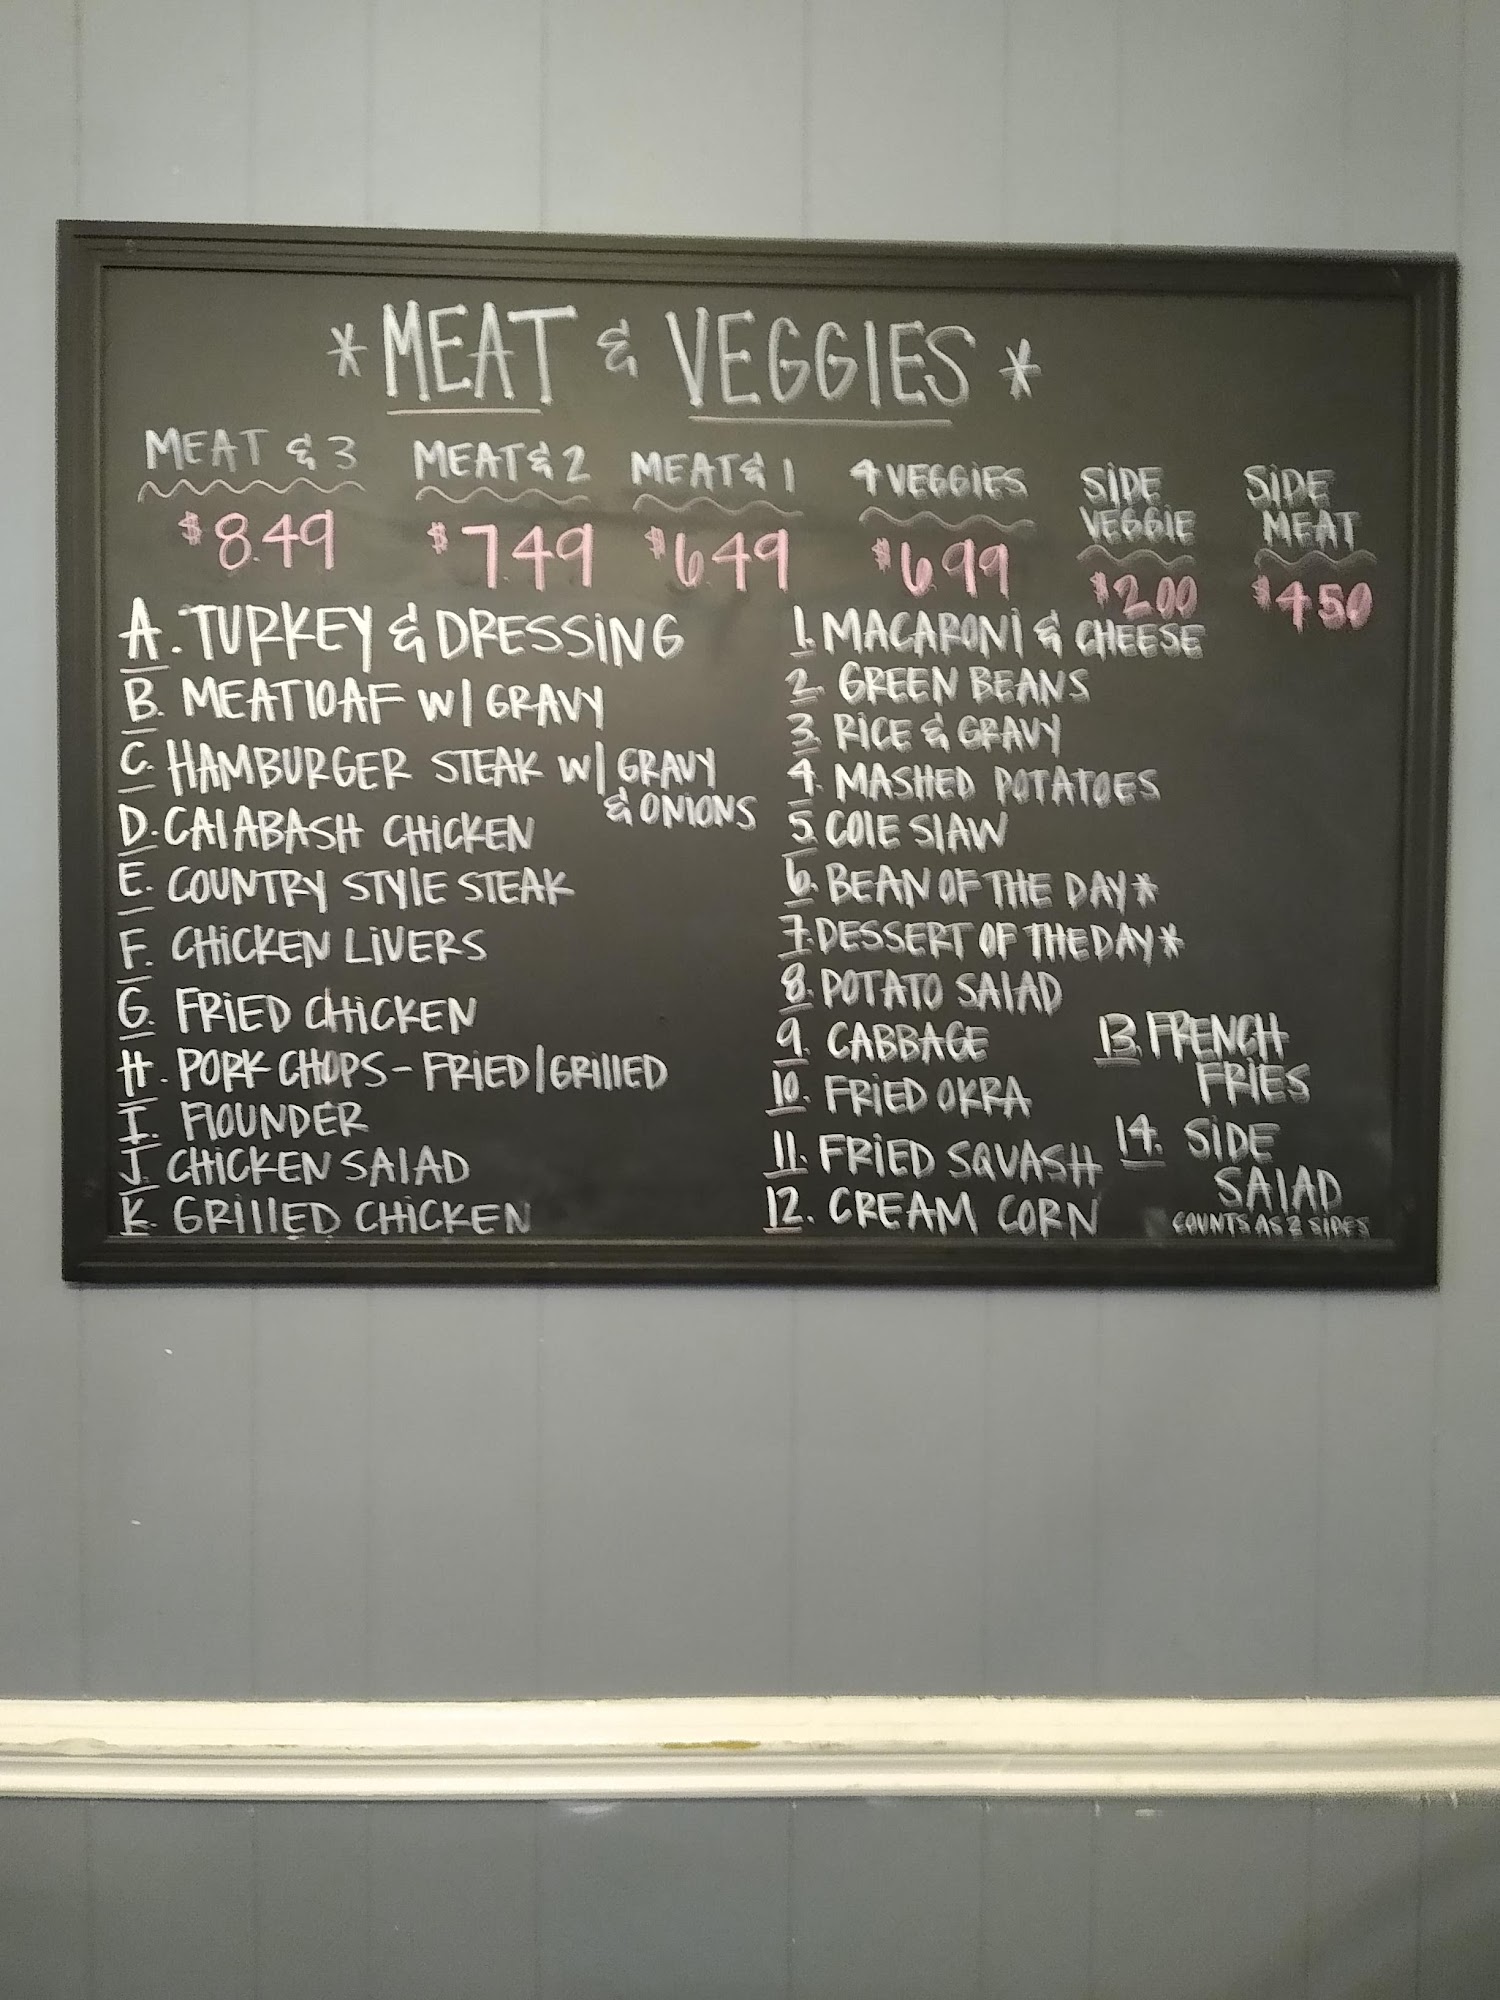 * MEAT & VEGGIES *
MEAT & 3
$8.49
MEAT & 2
$7.49
MEAT & 1
$6.49
4 VEGGIES
$6.99
SIDE
VEGGIE
$2.00
SIDE
MEAT
$4.50
A. TURKEY & DRESSING
B. MEATLOAF W/ GRAVY
C. HAMBURGER STEAK W/ GRAVY
& ONIONS
D. CALABASH CHICKEN
E. COUNTRY STYLE STEAK
F. CHICKEN LIVERS
G. FRIED CHICKEN
H. PORK CHOPS - FRIED/GRILLED
I. FLOUNDER
J. CHICKEN SALAD
K. GRILLED CHICKEN
1. MACARONI & CHEESE
2. GREEN BEANS
3. RICE & GRAVY
4. MASHED POTATOES
5. COLE SLAW
6. BEAN OF THE DAY*
7. DESSERT OF THE DAY*
8. POTATO SALAD
9. CABBAGE
10. FRIED OKRA
11. FRIED SQUASH
12. CREAM CORN
13. FRENCH
FRIES
14. SIDE
SALAD
COUNTS AS 2 SIDES